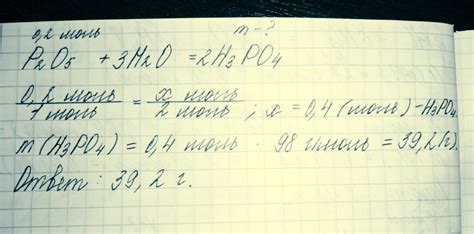 0,2 моль m-?
P2O5 + 3H2O = 2H3PO4
0,2 моль / 1 моль = x моль / 2 моль ; x = 0,4 (моль) - H3PO4
m (H3PO4) = 0,4 моль · 98 г/моль = 39,2 (г).
Ответ: 39,2 г.